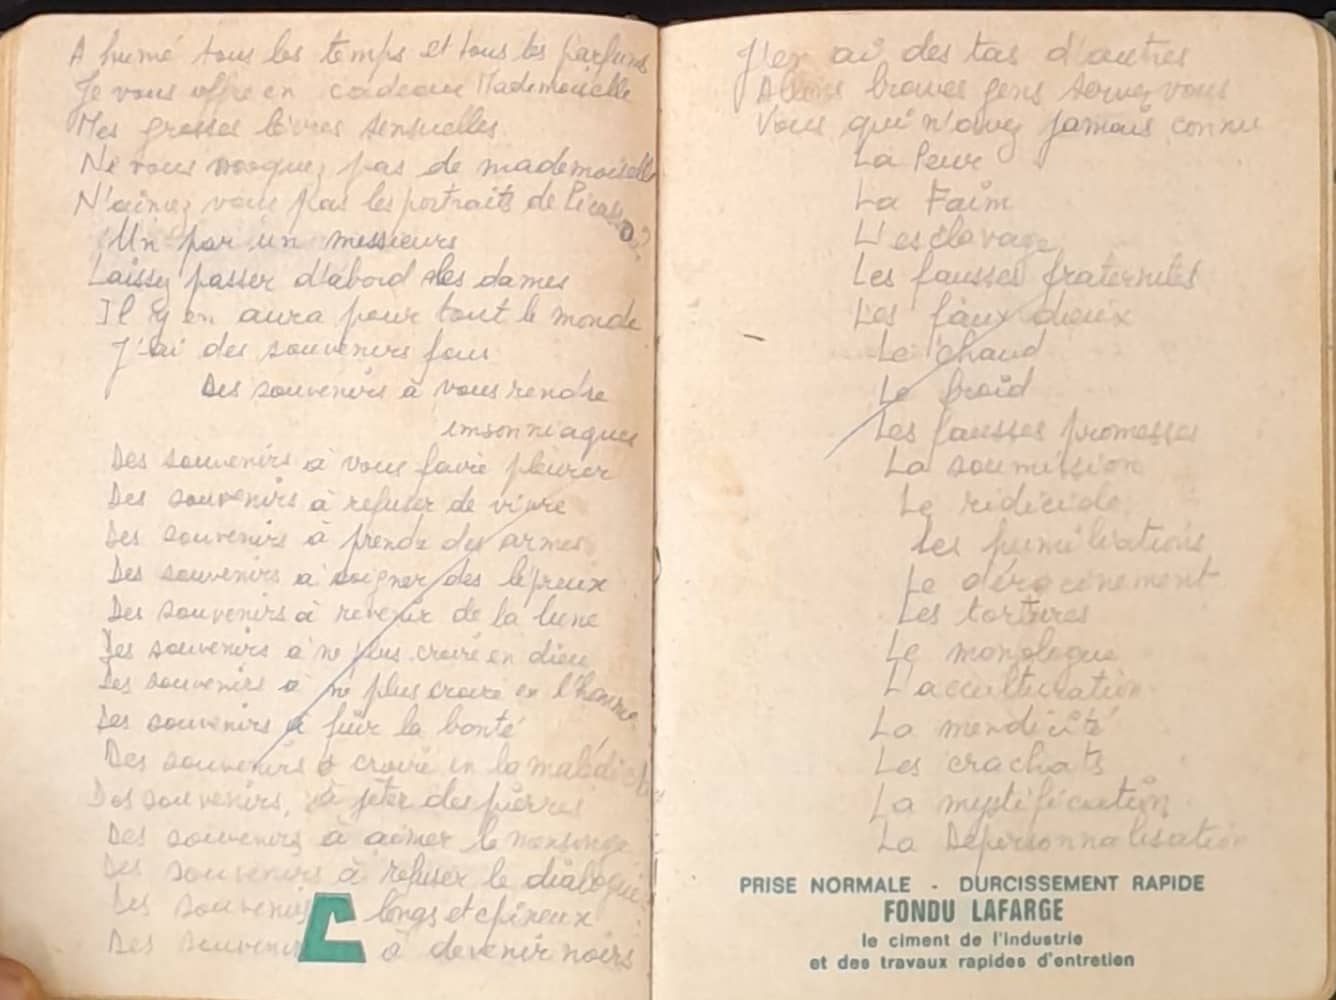 A humé tous les temps et tous les parfums
Je vous offre en cadeau Mademoiselle
Mes grosses lèvres sensuelles
Ne vous moquez pas de mademoiselle
N'aimez vous pas les portraits de Picasso?
Un par un messieurs
Laissez passer d'abord les dames
Il y en aura pour tout le monde
J'ai des souvenirs fous
Des souvenirs à vous rendre
imsonniaques
Des souvenirs à vous faire pleurer
Des souvenirs à refuser de vivre
Des souvenirs à prendre des armes
Des souvenirs à soigner des lépreux
Des souvenirs à revenir de la lune
Des souvenirs à ne plus croire en dieu
Des souvenirs à ne plus croire en l'homme
Des souvenirs à fuir la bonté
Des souvenirs à croire en la malédiction
Des souvenirs, à jeter des pierres
Des souvenirs à aimer le mensonge
Des souvenirs à refuser le dialogue
Des souvenirs longs et épineux
Des souvenirs à devenir noirs
J'en ai des tas d'autres
Allons braves gens servez vous
Vous qui n'avez jamais connu
La Peur
La Faim
L'esclavage
Les fausses fraternités
Les faux dieux
Le chaud
Le froid
Les fausses promesses
La soumission
Le ridicule
Les humiliations
Le déracinement
Les tortures
Le monologue
L'acculturation
La mendicité
Les crachats
La mystification
La Dépersonnalisation
PRISE NORMALE - DURCISSEMENT RAPIDE
FONDU LAFARGE
le ciment de l'industrie
et des travaux rapides d'entretien